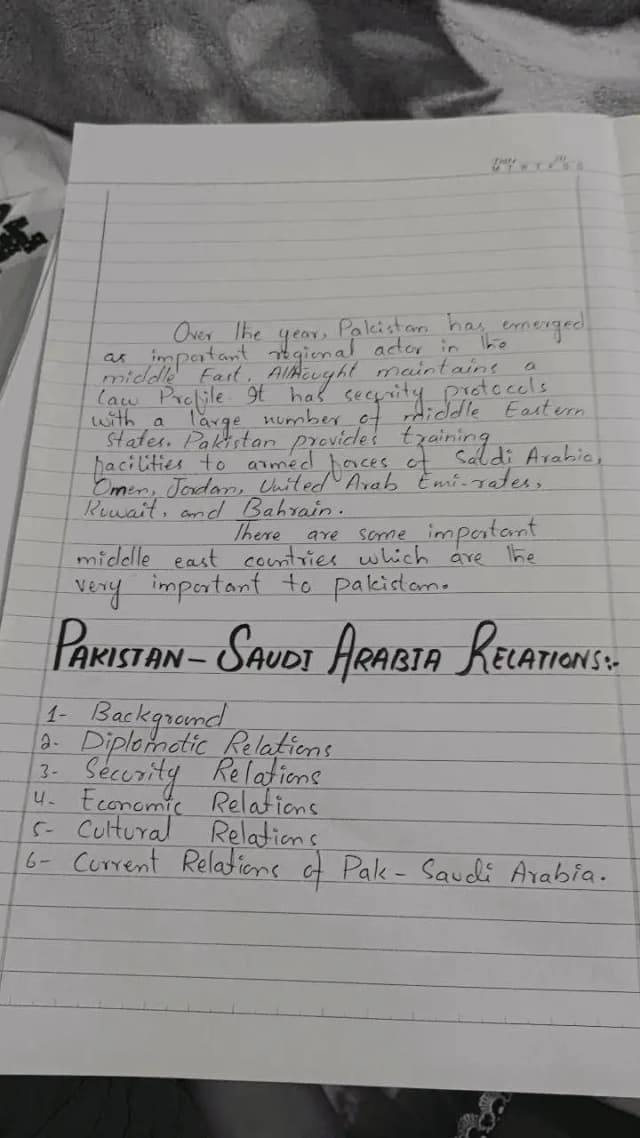 Date
M T W T F S S
Over the year, Pakistan has emerged
as important regional actor in the
middle East. Althought maintains a
law Profile. It has security protocols
with a large number of middle Eastern
States. Pakistan provides training
facilities to armed forces of Saudi Arabia,
Omen, Jordan, United Arab Emi-rates,
Kuwait, and Bahrain.
There are some important
middle east countries which are the
very important to pakistan.
PAKISTAN - SAUDI ARABIA RELATIONS:-
1- Background
2- Diplomatic Relations
3- Security Relations
4- Economic Relations
5- Cultural Relations
6- Current Relations of Pak - Saudi Arabia.